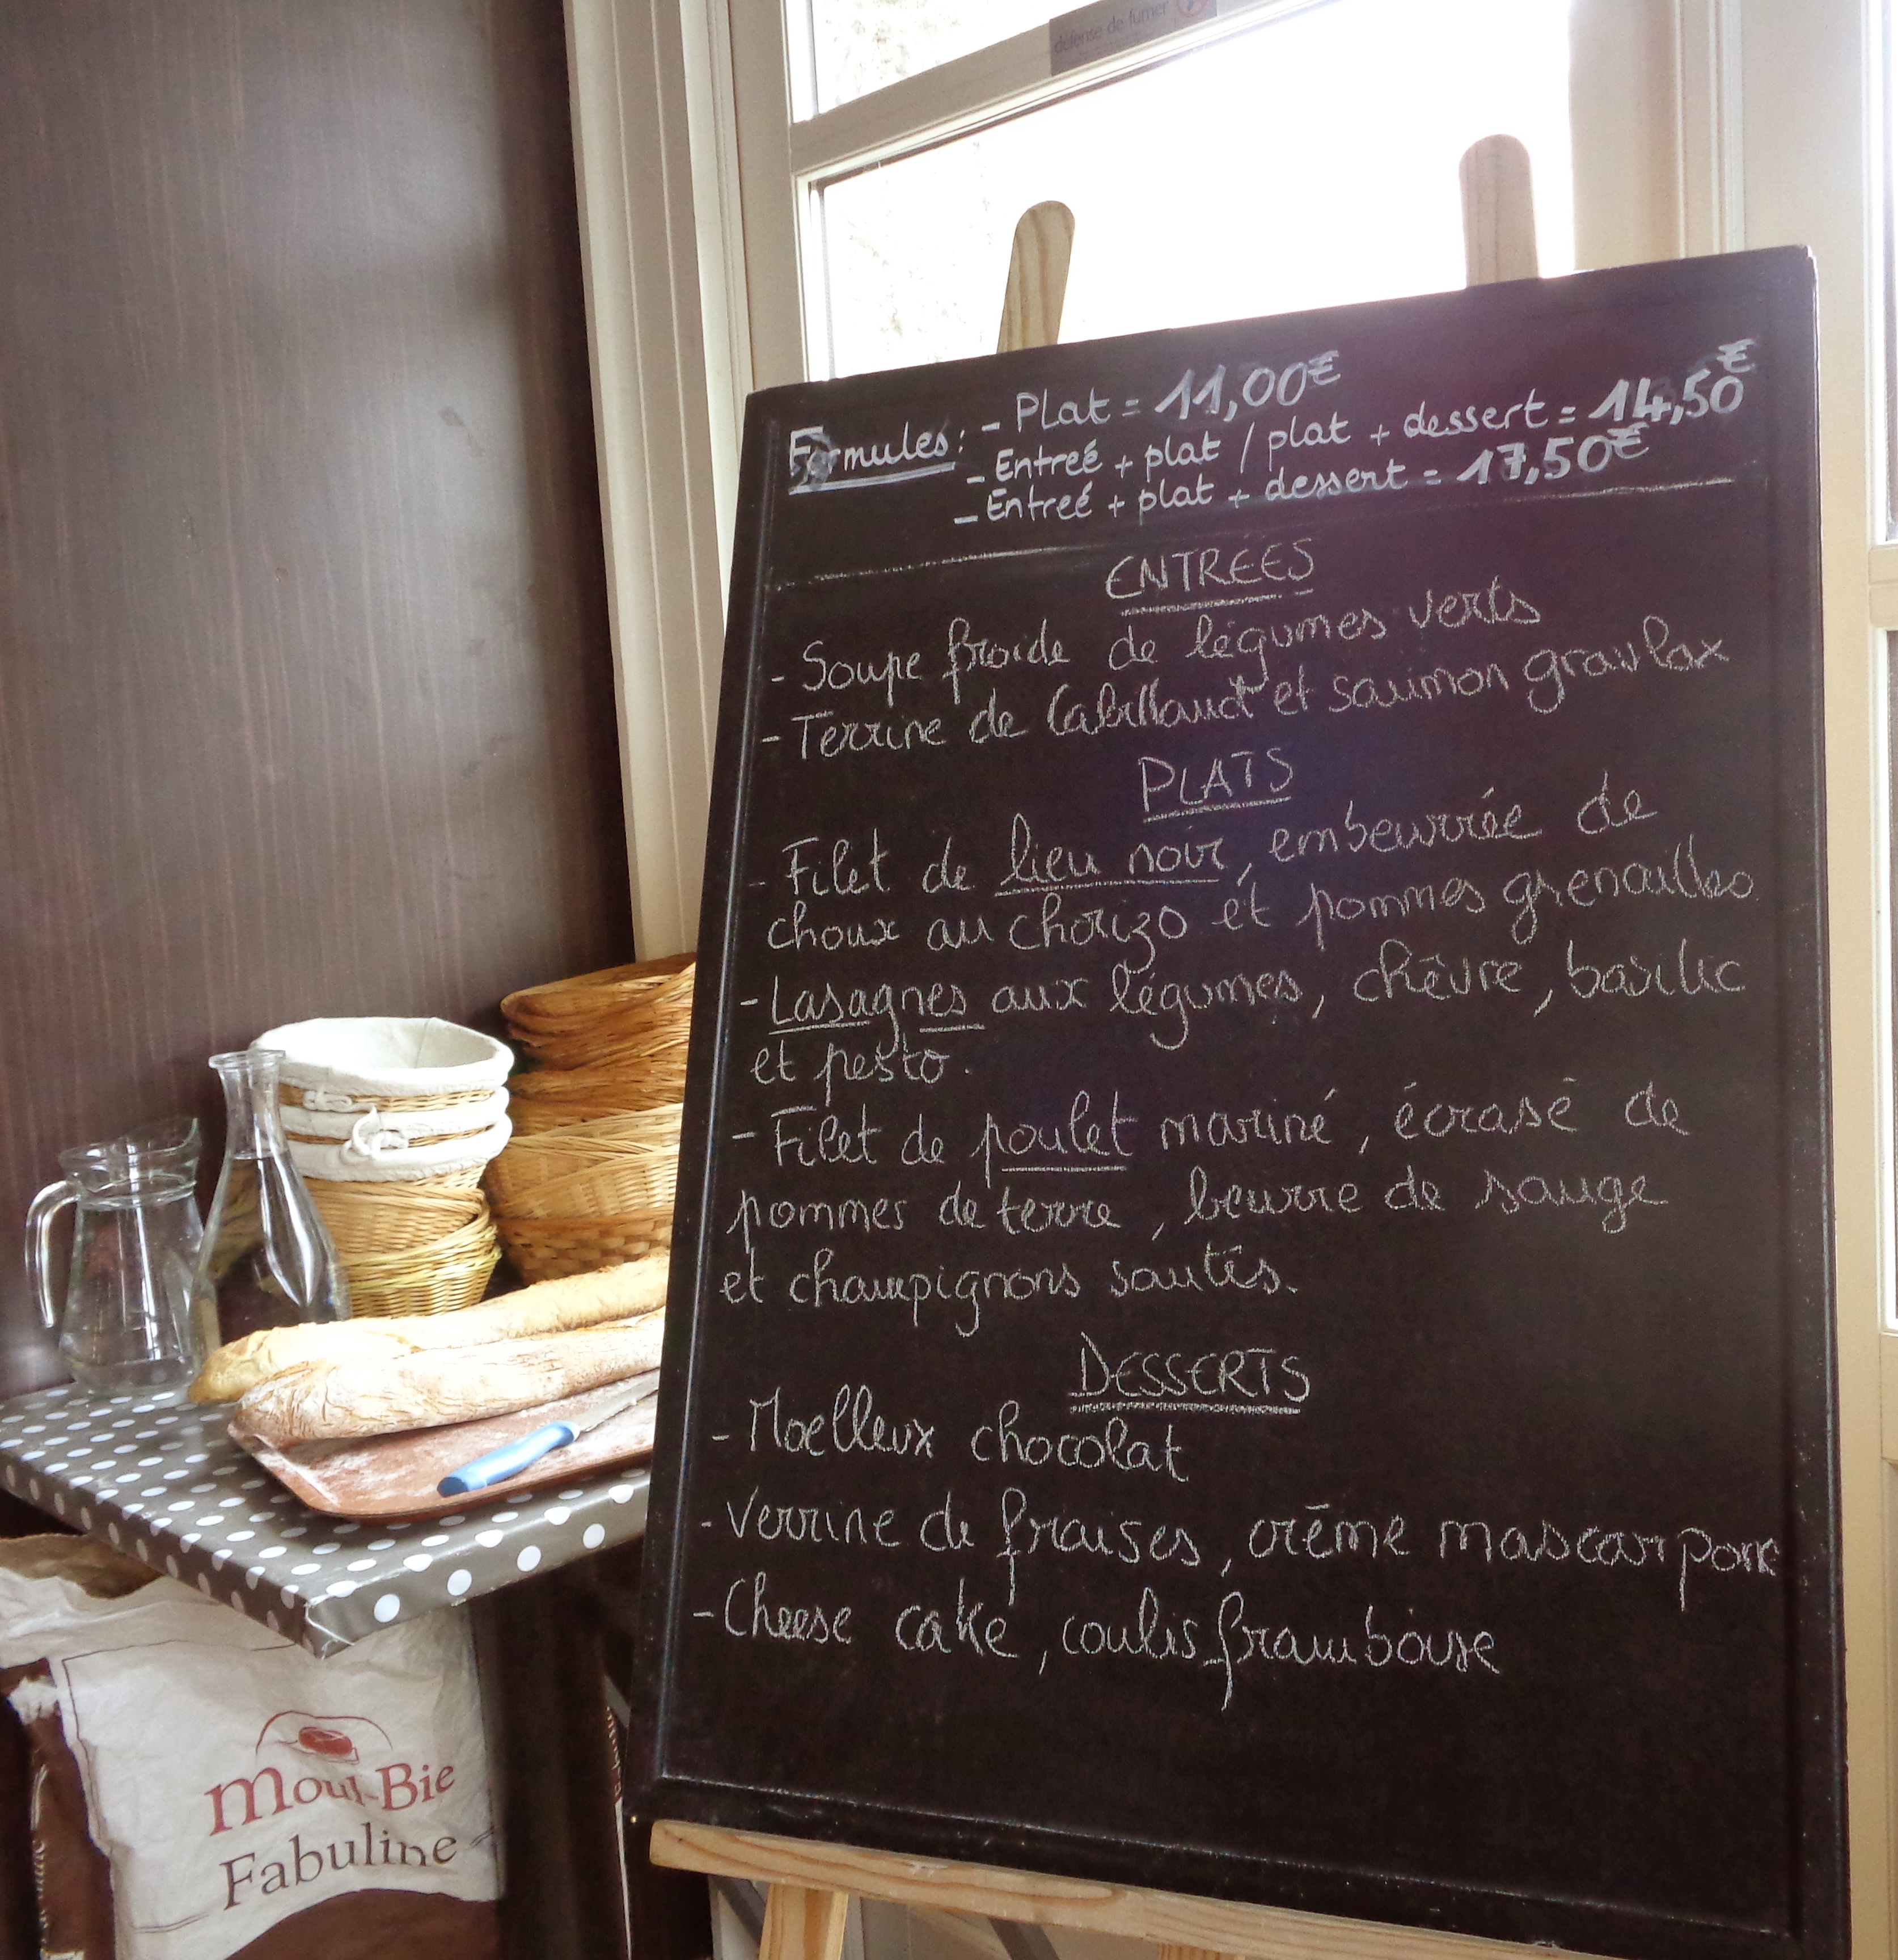 défense de fumer
Formules: - Plat = 11,00€
- Entreé + plat / plat + dessert = 14,50€
- Entreé + plat + dessert = 17,50€
ENTREES
- Soupe froide de légumes verts
- Terrine de Cabillaud et saumon gravlax
PLATS
- Filet de lieu noir, embeurrée de
choux au chorizo et pommes grenailles
- Lasagnes aux légumes, chèvre, basilic
et pesto.
- Filet de poulet mariné, écrasé de
pommes de terre, beurre de sauge
et champignons sautés.
DESSERTS
- Moelleux chocolat
- Verrine de fraises, crème mascarpone
- Cheese cake, coulis framboise
Moul-Bie
Fabuline